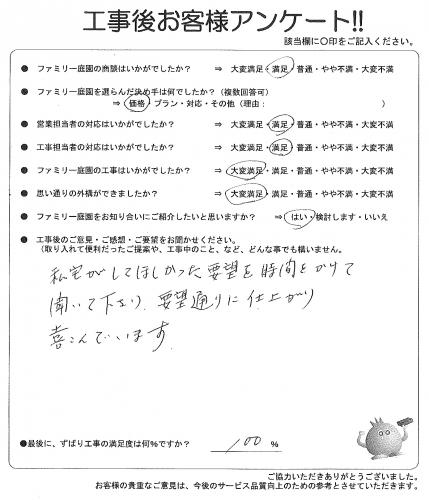 工事後お客様アンケート!!
該当欄に○印をご記入ください。
● ファミリー庭園の商談はいかがでしたか? ⇒ 大変満足・満足・普通・やや不満・大変不満
● ファミリー庭園を選らんだ決め手は何でしたか?(複数回答可)
⇒ 価格・プラン・対応・その他(理由: )
● 営業担当者の対応はいかがでしたか? ⇒ 大変満足・満足・普通・やや不満・大変不満
● 工事担当者の対応はいかがでしたか? ⇒ 大変満足・満足・普通・やや不満・大変不満
● ファミリー庭園の工事はいかがでしたか? ⇒ 大変満足・満足・普通・やや不満・大変不満
● 思い通りの外構ができましたか? ⇒ 大変満足・満足・普通・やや不満・大変不満
● ファミリー庭園をお知り合いにご紹介したいと思いますか? ⇒ はい・検討します・いいえ
● 工事後のご意見・ご感想・ご要望をお聞かせください。
(取り入れて便利だったご提案や、工事中のこと、など、どんな事でも構いません。
私宅がしてほしかった要望を時間をかけて
聞いて下さり、要望通りに仕上がり
喜こんでいます。
●最後に、ずばり工事の満足度は何%ですか? 100 %
ご協力いただきありがとうございました。
お客様の貴重なご意見は、今後のサービス品質向上のための参考とさせていただきます。